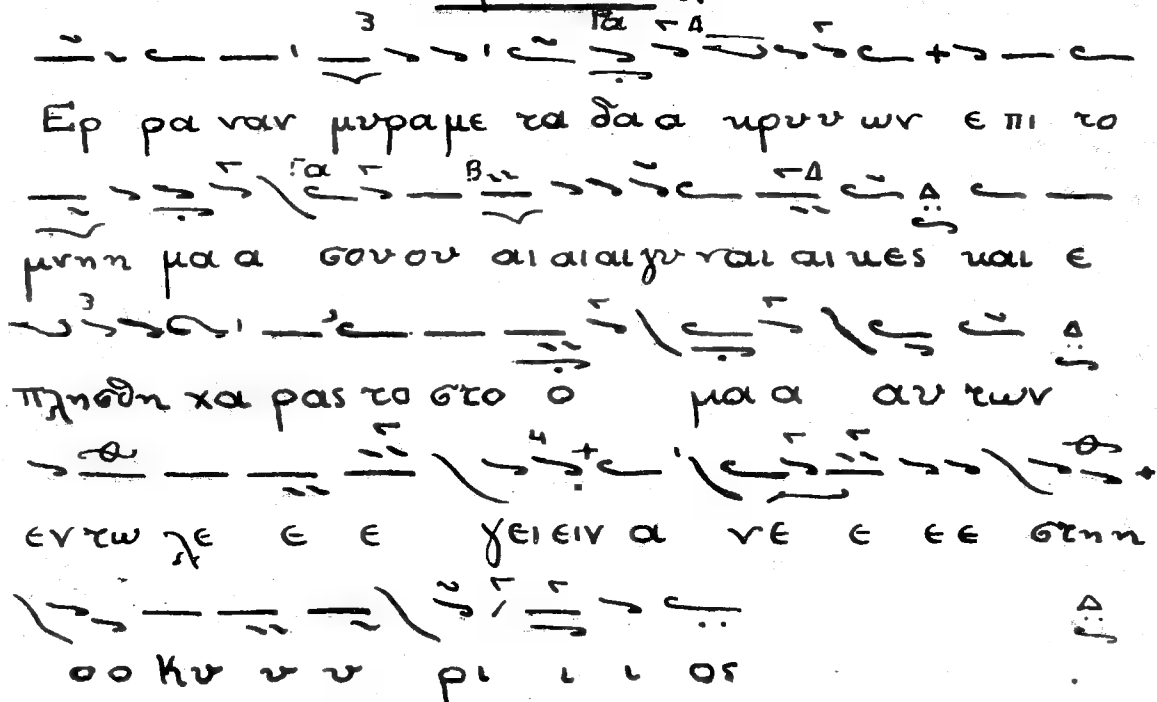 Ερ ρα ναν μυραμε τα δα α κρυυ ων ε πι το
μνηη μα α σουου αι αιαιγυ ναι αι κες και ε
πλησθη χα ρας το στο ο μα α αυ των
εν τω λε ε ε γειειν α νε ε εε στηη
οο Κυ υ υ ρι ι ι ος